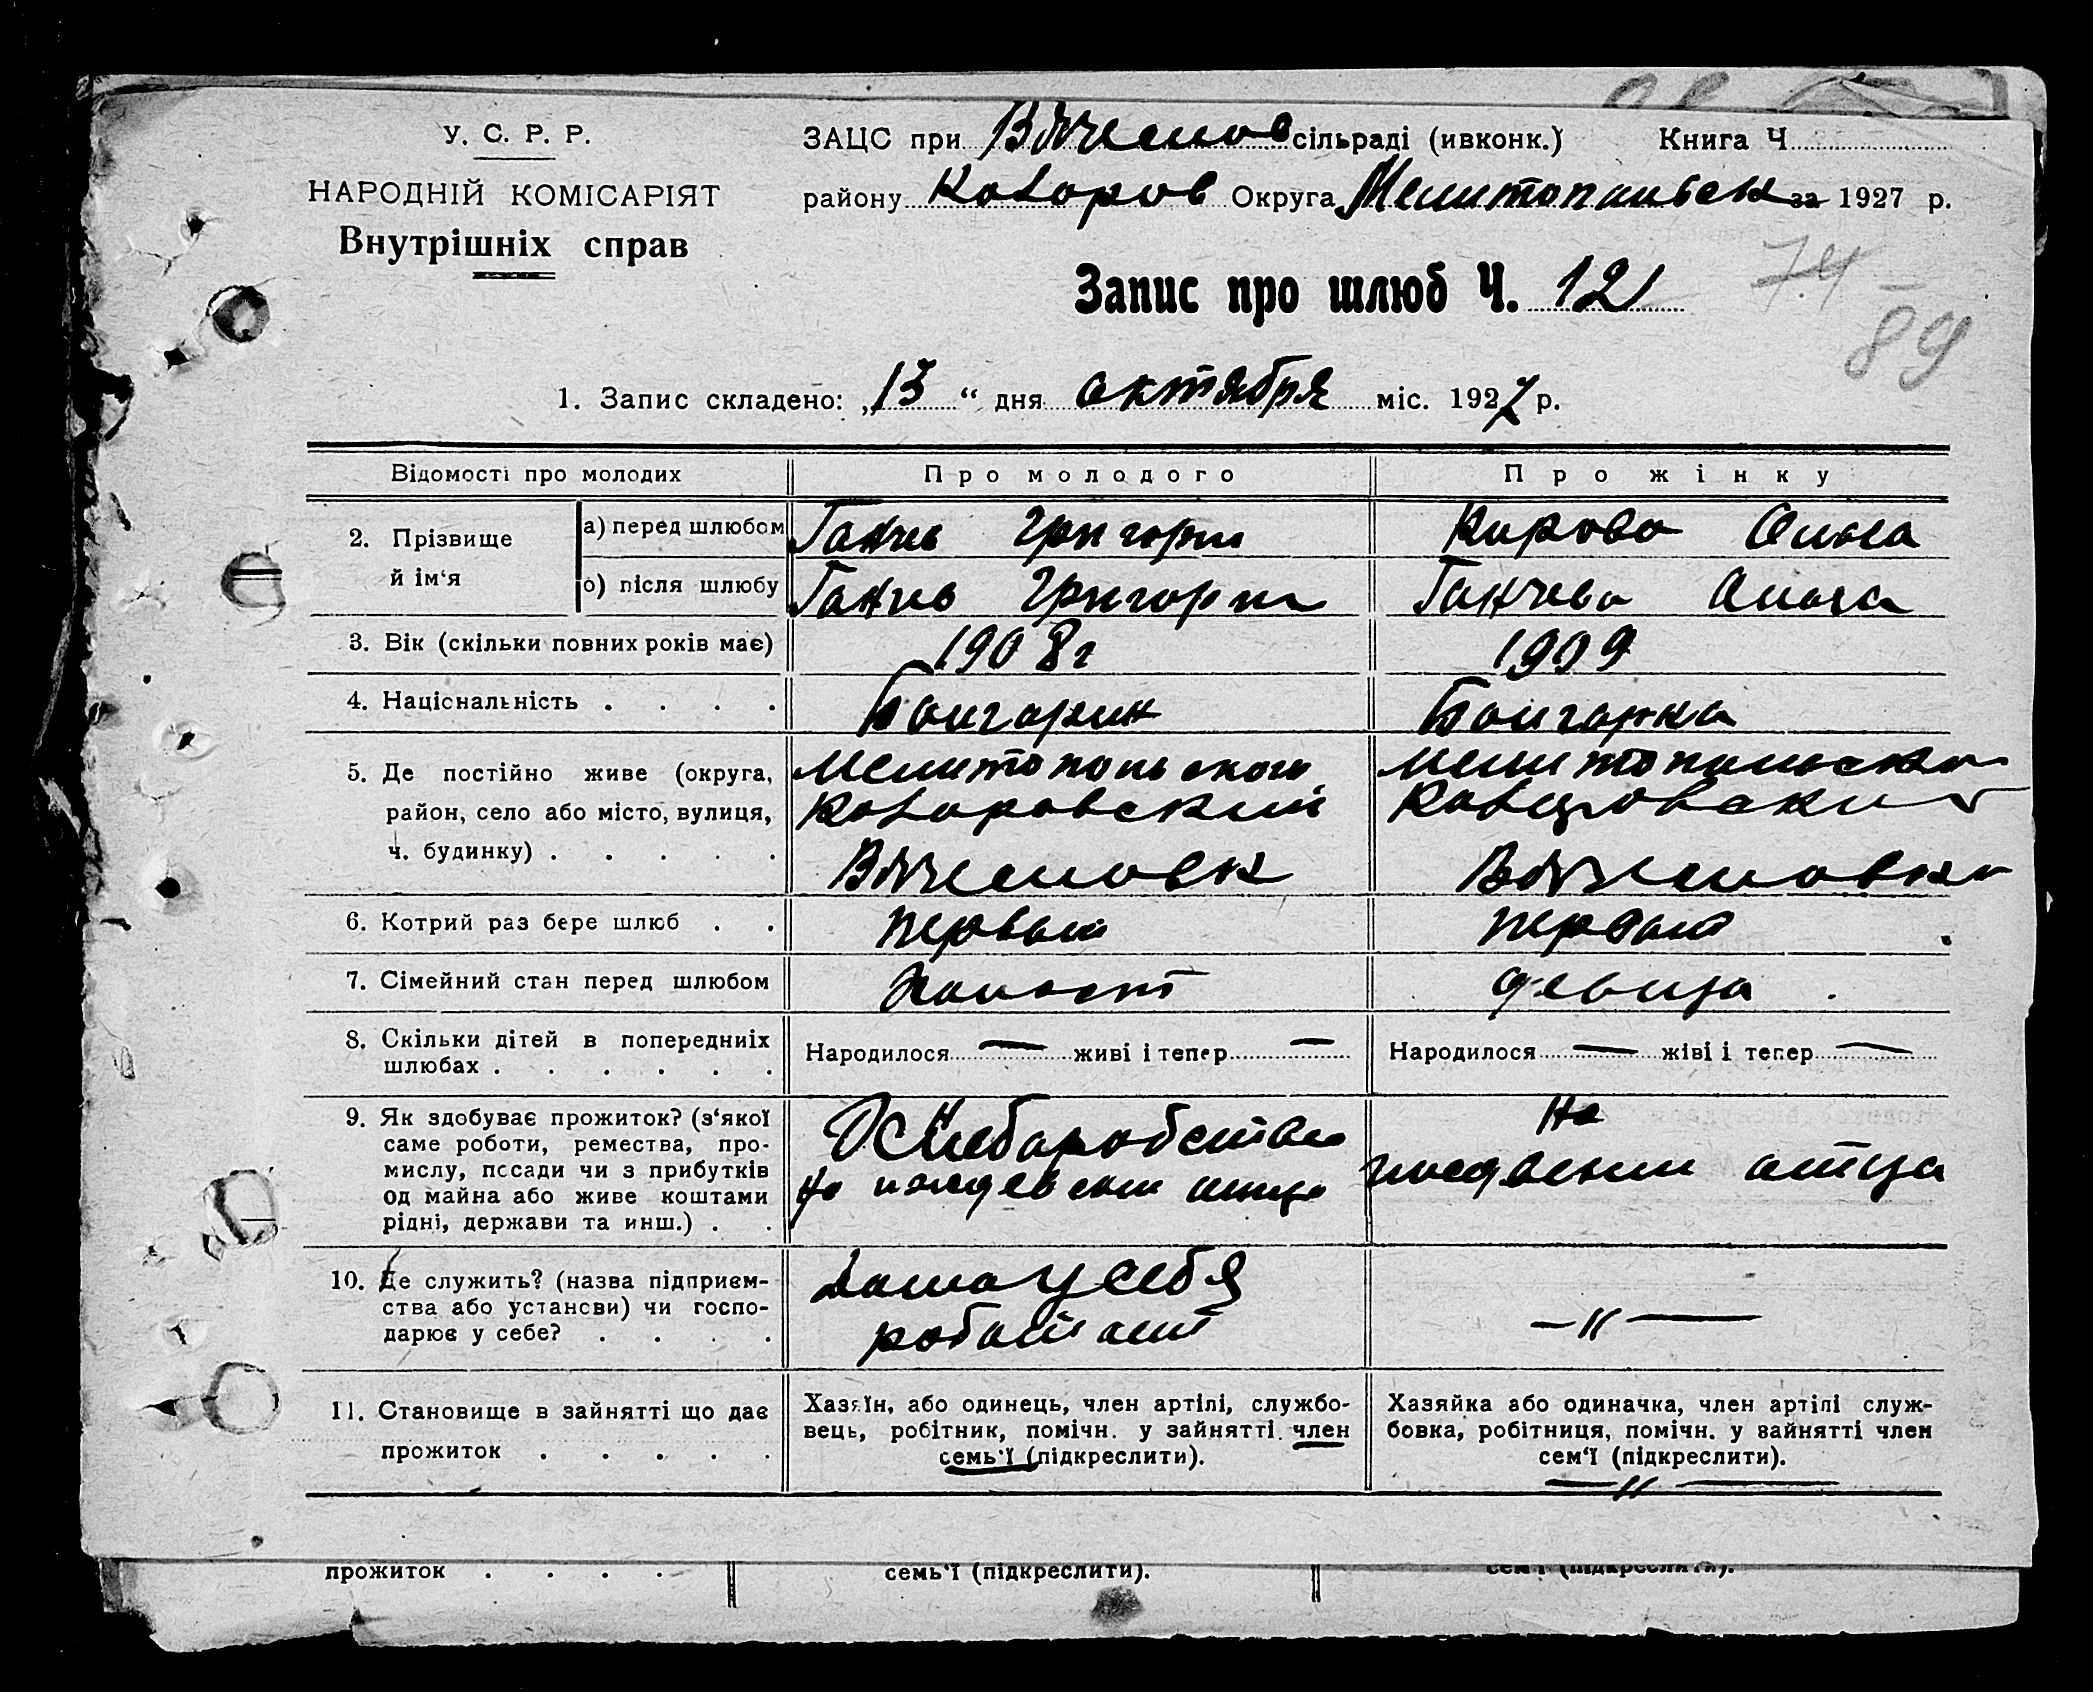 У. С. Р. Р.
НАРОДНІЙ КОМІСАРІЯТ
Внутрішніх справ
ЗАЦС при Вячеслов сільраді (ивконк.) Книга Ч.
району Коларов Округа Мелитопольск за 1927 р.
Запис про шлюб Ч. 12
74
89
1. Запис складено: „13“ дня октября міс. 1927 р.
Відомості про молодих Про молодого Про жінку
2. Прізвище й ім‘я
а) перед шлюбом Ганчев Григори Кирова Олга
о) після шлюбу Ганчев Григори Ганчева Олга
3. Вік (скільки повних років має) 1908 г 1909
4. Національність . . . . Болгарин Болгарка
5. Де постійно живе (округа, Мелитопольского
район, село або місто, вулиця, Коларовский Коларовский
ч. будинку) . . . . .
6. Котрий раз бере шлюб . . первый первый
7. Сімейний стан перед шлюбом Холост девица
8. Скільки дітей в попередниіх
шлюбах . . . . . .
Народилося — живі і тепер — Народилося — жіві і тепер —
9. Як здобуває прожиток? (з‘якої
саме роботи, ремества, про-
мислу, посади чи з прибутків
од майна або живе коштами
рідні, держави та инш.) . .
На
На иждевении отца
иждвении отца
10. Де служить? (назва підприєм-
ства або установи) чи госпо-
дарює у себе? . . . .
дома у себя
работает
—〃—
11. Становище в зайнятті що дає
прожиток . . . . .
Хазяїн, або одинець, член артілі, службо-
вець, робітник, помічн. у зайнятті. член
семь‘ї (підкреслити).
Хазяйка або одиначка, член артілі служ-
бовка, робітниця, помічн. у зайнятті член
сем‘ї (підкреслити).
—〃—
прожиток . . . . семь‘ї (підкреслити). сем‘ї (підкреслити).